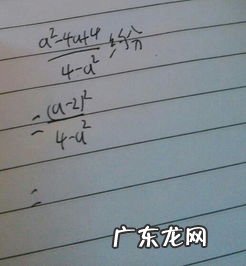 a²-4a+4
4-a² 约分
= (a-2)²
4-a²
=
广东龙网